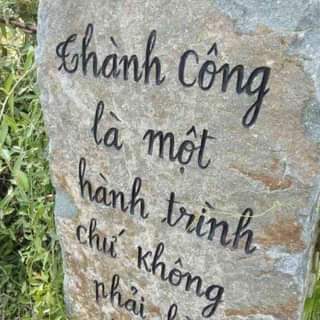 Thành Công
là một
hành trình
chứ không
phải